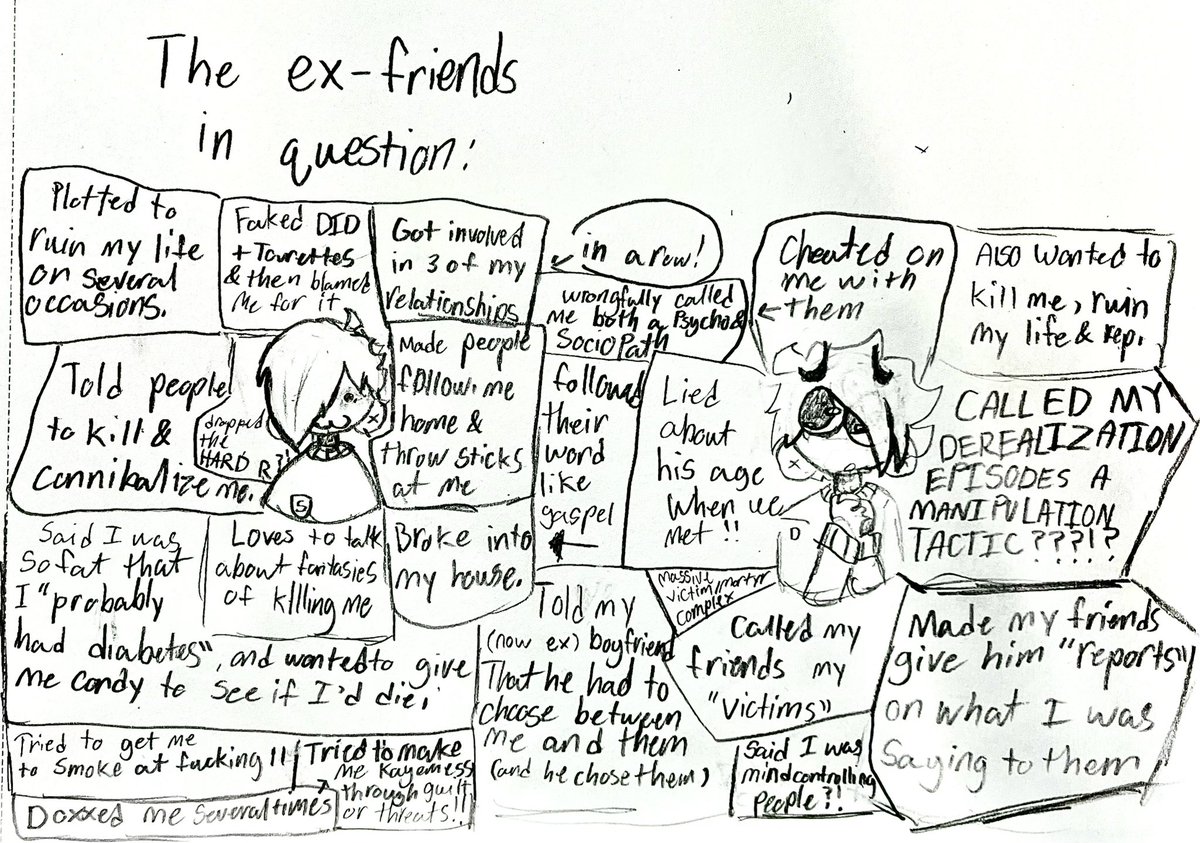 The ex-friends
in question:
Plotted to
ruin my life
on several
occasions.
Faked DID
+ Tourettes
& then blamed
me for it
Got involved
in 3 of my
relationships
in a row!
wrongfully called
me both a Psycho &
SocioPath
Cheated on
me with
them
Also wanted to
kill me, ruin
my life & rep.
Told people
to kill &
cannibalize me.
dropped
the
HARD R?!
S
Made people
follow me
home &
throw sticks
at me
followed
their
word
like
gaspel
Lied
about
his age
when we
met!!
D
CALLED MY
DEREALIZATION
EPISODES A
MANIPULATION
TACTIC???!?
Said I was
so fat that
I "probably
had diabetes", and wanted to give
me candy to see if I'd die!
Loves to talk
about fantasies
of killing me
Broke into
my house.
Told my
(now ex) boyfriend
That he had to
choose between
me and them
(and he chose them)
massive
victim/martyr
complex
Called my
friends my
"victims"
Made my friends
give him "reports"
on what I was
saying to them
Tried to get me
to smoke at fucking 11
Tried to make
me
through guilt
or threats!!
Doxxed me several times
Said I was
mindcontrolling
people?!